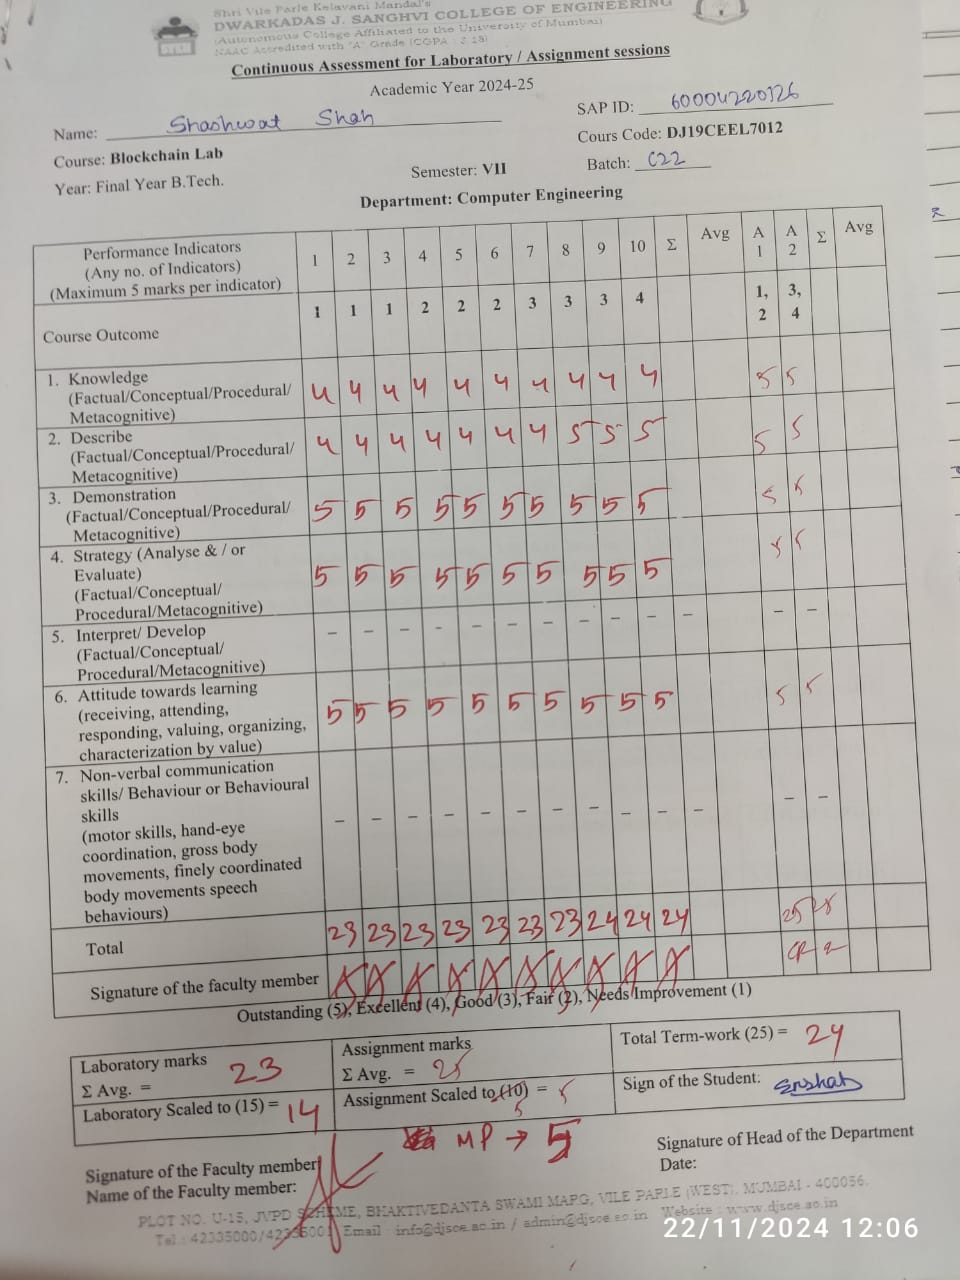 Shri Vile Parle Kelavani Mandal's
DWARKADAS J. SANGHVI COLLEGE OF ENGINEERING
(Autonomous College Affiliated to the University of Mumbai)
NAAC Accredited with "A" Grade (CGPA : 3.18)
Continuous Assessment for Laboratory / Assignment sessions
Academic Year 2024-25
Name: Shashwat Shah SAP ID: 60004220126
Course: Blockchain Lab Cours Code: DJ19CEEL7012
Year: Final Year B.Tech. Semester: VII Batch: C22
Department: Computer Engineering
Performance Indicators
(Any no. of Indicators)
(Maximum 5 marks per indicator) 1 2 3 4 5 6 7 8 9 10 Σ Avg A1 A2 Σ Avg
Course Outcome 1 1 1 2 2 2 3 3 3 4 1, 2 3, 4
1. Knowledge
(Factual/Conceptual/Procedural/
Metacognitive) 4 4 4 4 4 4 4 4 4 4 5 5
2. Describe
(Factual/Conceptual/Procedural/
Metacognitive) 4 4 4 4 4 4 4 5 5 5 5 5
3. Demonstration
(Factual/Conceptual/Procedural/
Metacognitive) 5 5 5 5 5 5 5 5 5 5 5 5
4. Strategy (Analyse & / or
Evaluate)
(Factual/Conceptual/
Procedural/Metacognitive) 5 5 5 5 5 5 5 5 5 5 5 5
5. Interpret/ Develop
(Factual/Conceptual/
Procedural/Metacognitive) - - - - - - - - - - - - -
6. Attitude towards learning
(receiving, attending,
responding, valuing, organizing,
characterization by value) 5 5 5 5 5 5 5 5 5 5 5 5
7. Non-verbal communication
skills/ Behaviour or Behavioural
skills
(motor skills, hand-eye
coordination, gross body
movements, finely coordinated
body movements speech
behaviours) - - - - - - - - - - - - -
Total 23 23 23 23 23 23 23 24 24 24 25 25
Signature of the faculty member
Outstanding (5), Excellent (4), Good (3), Fair (2), Needs Improvement (1)
Laboratory marks
Σ Avg. = 23
Assignment marks
Σ Avg. = 25
Total Term-work (25) = 24
Laboratory Scaled to (15) = 14
Assignment Scaled to (10) = 5
5
Sign of the Student:
MP → 5
Signature of the Faculty member
Name of the Faculty member:
Signature of Head of the Department
Date:
PLOT NO. U-15, JVPD SCHEME, BHAKTIVEDANTA SWAMI MARG, VILE PARLE (WEST), MUMBAI - 400056.
Tel.: 42335000/42335001 Email : info@djsce.ac.in / admin@djsce.ac.in Website : www.djsce.ac.in
22/11/2024 12:06